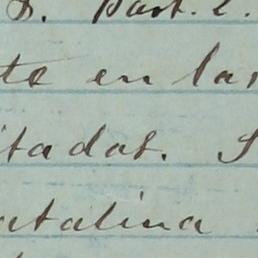 S. Part. 2.
te en las
itadas. S
atalina